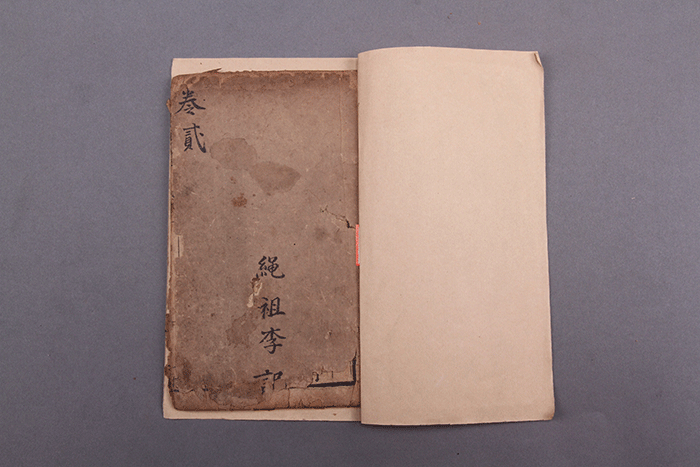 卷貳
繩祖李記